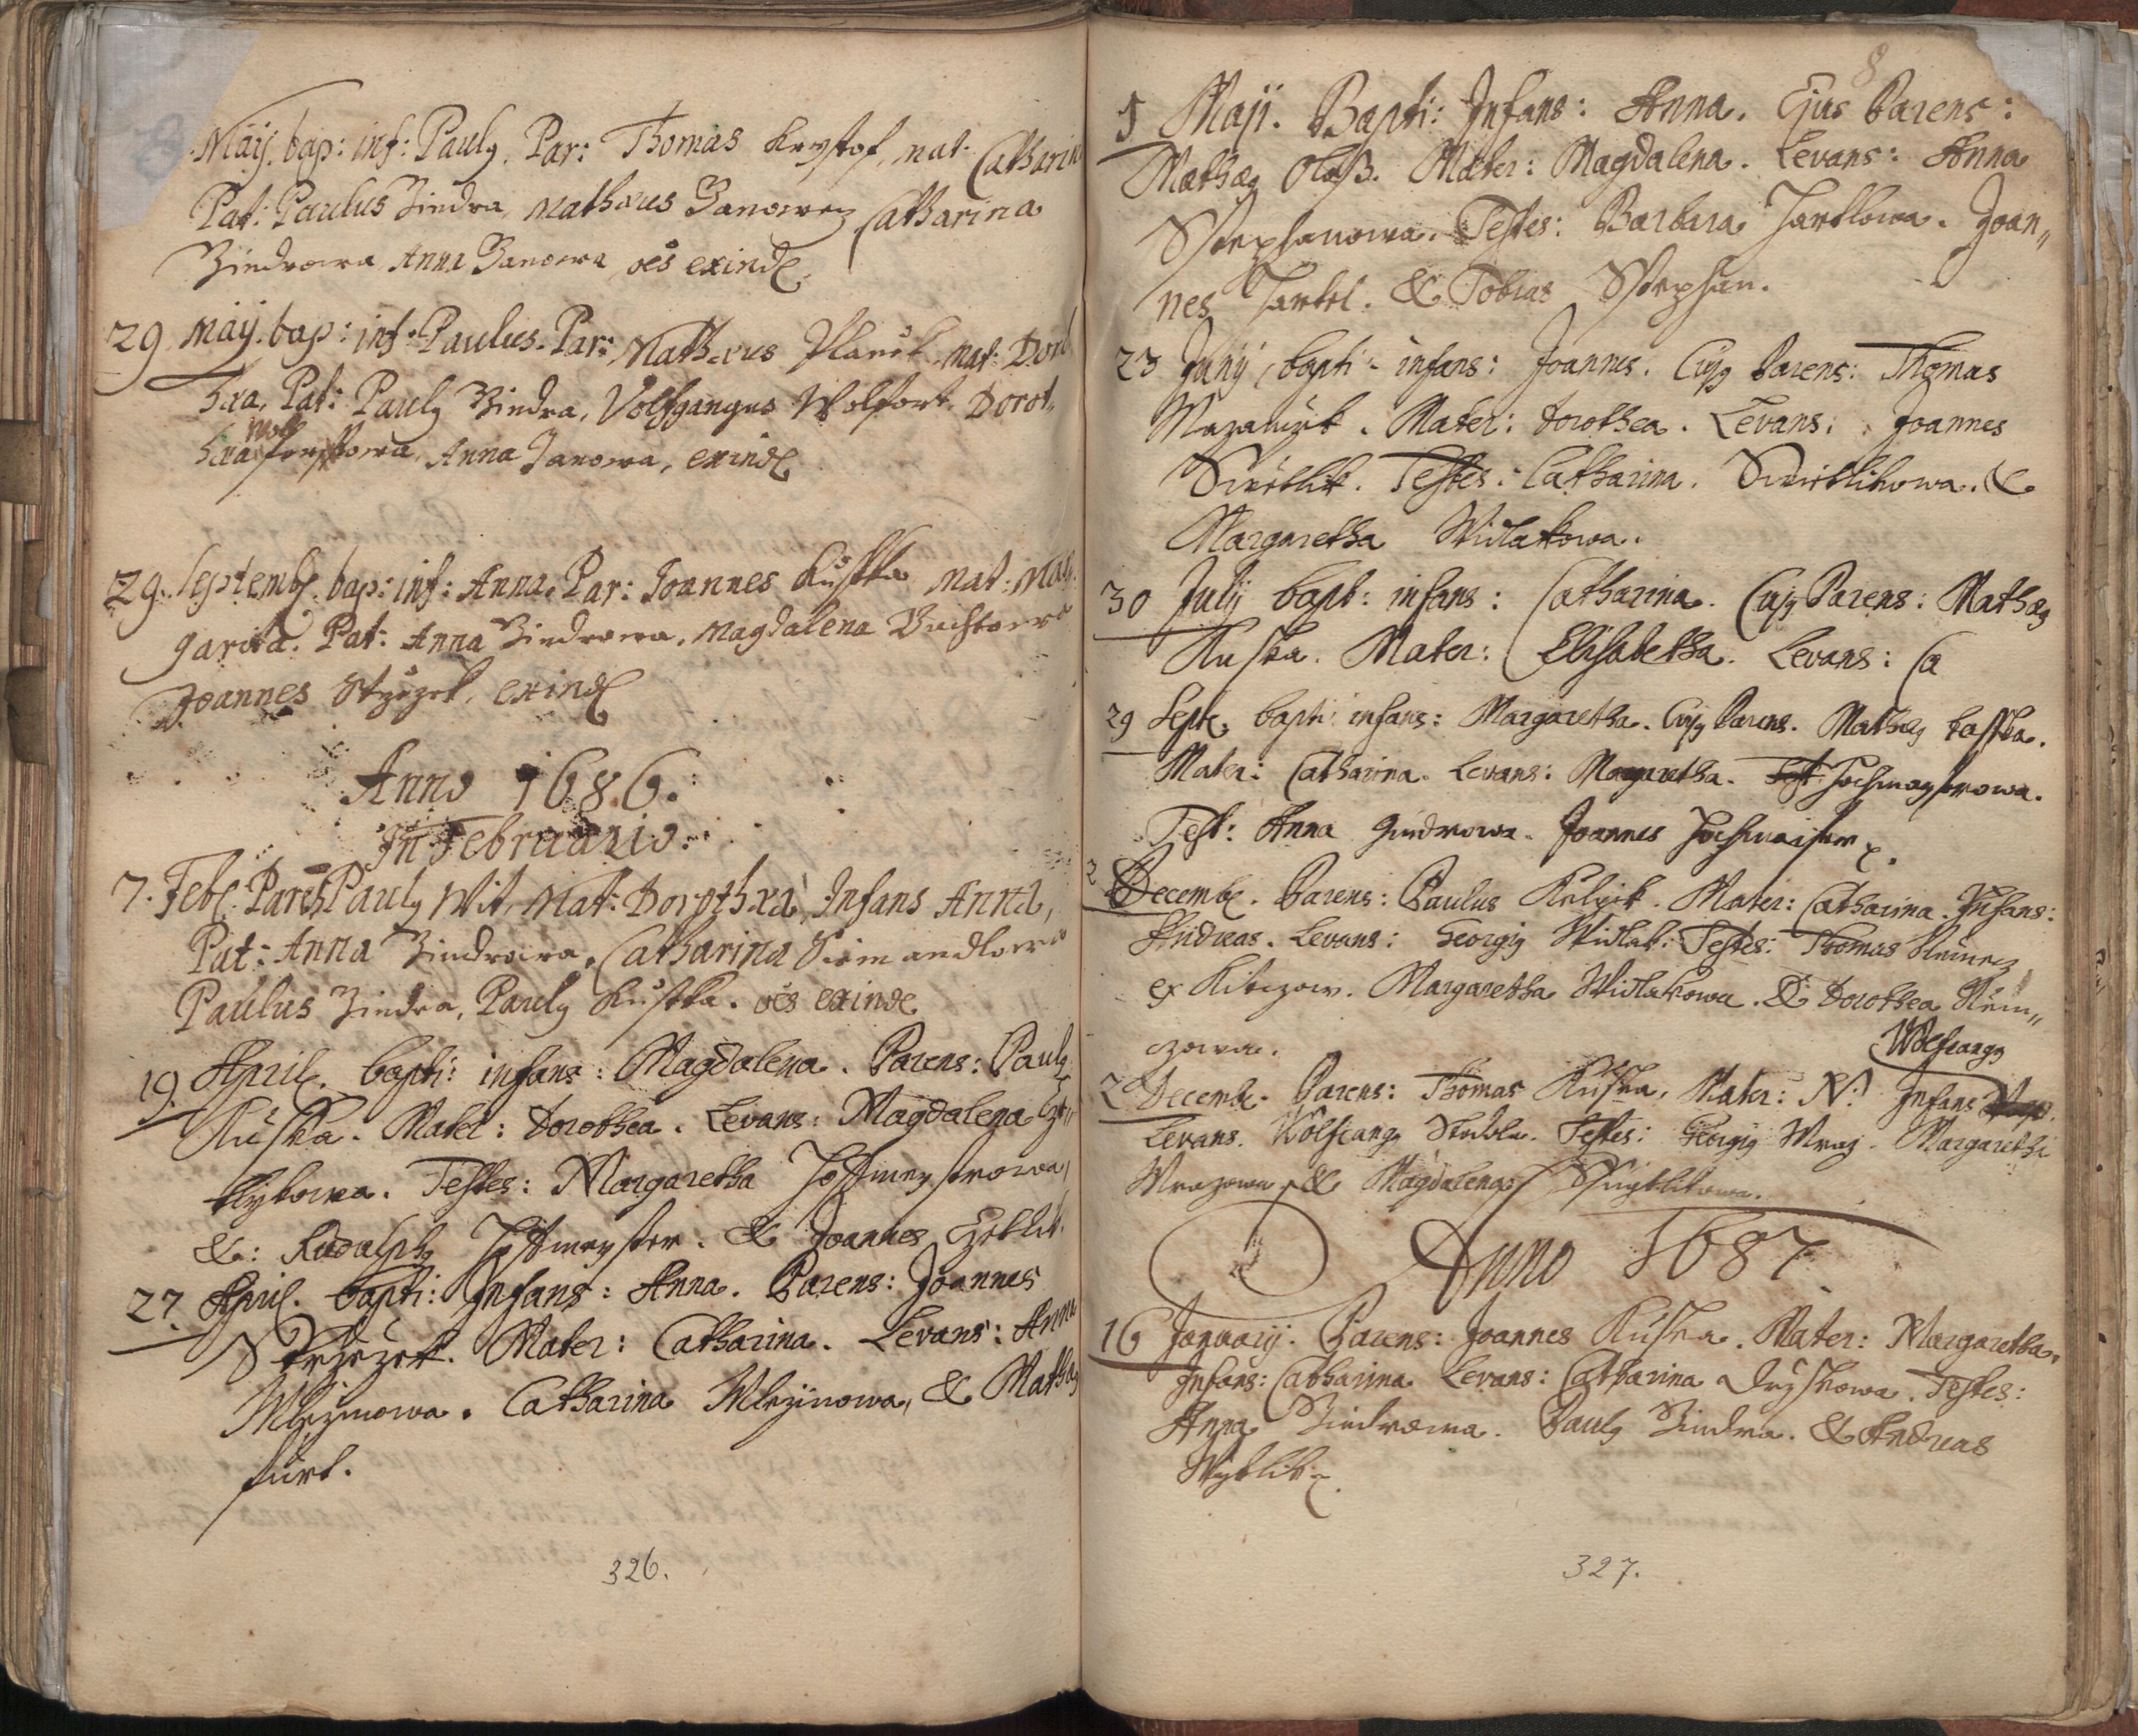 Maij. bap: inf: Paulq. Par: Thomas Krystof, mat. Catharin
Pat: Paulus Zindra, Mathæus Janowez Catharina
Zindrowa Anna Janowa, oes exinde
29 maij. bap: inf: Paulus. Par: Mathæus Planek. mat: Doro
hæa, Pat: Paulq Zindra, Volfgangus Wolfort Dorot,
hæa Anna Janowa, exinde
29. Septemb. bap: inf: Anna. Par: Joannes Kustka mat: Mar
garita. Pat: Anna Zindrowa, Magdalena
Joannes exinde
Anno 1686.
In Februario.
7. Feb. Parens Paulq Wit, Mat: Dorothæa, Infans Anna,
Pat: Anna Zindrowa, Catharina Simandlowa
Paulus Zindra, Paulq Kustka. oes exinde
19. April. bapti: infans: Magdalena. Parens: Paulq
Kuska. Mater: Dorothea. Levans: Magdalena
Testes: Margaretha Hoffmeystrowa,
&: Rudolphq Hoffmeyster. & Joannes
27. April. bapti: Infans: Anna. Parens: Joannes
Mater: Catharina. Levans: Anna
Mlezinowa. Catharina Mlezinowa, & Mathæq
furt.
326.
8
5 Maji. Bapti: Infans: Anna. Ejus Parens:
Mathæq Olaß. Mater: Magdalena. Levans: Anna
Stephanowa. Testes: Barbara Hartlowa. Joan„
nes Hartl. & Tobias Stephan.
23 Junij bapti: infans: Joannes. Cujq Parens: Thomas
Mazanczik. Mater: Dorothea. Levans: Joannes
Swětlik. Testes: Catharina. Swietlikowa. &
Margaretha Widlakowa.
30 Julij bapt: infans: Catharina. Cujq Parens: Mathæq
Kuska. Mater: Elisabetha. Levans: Ca
29 Septe. bapti infans: Margaretha. Cujq Parens. Mathæq
Mater: Catharina. Levans: Margaretha. Hochmaystrowa.
Test: Anna Zindrowa. Joannes Hochmaister
2 Decemb. Parens: Paulus Mater: Catharina. Infans:
Andreas. Levans: Georgiq Widlak: Testes: Thomas Nemecz
ex Margaretha Widlakowa. & Dorothea Něm„
czowa.
Wolfcangq
2 Decemb. Parens: Thomas Kuska, Mater: N: Infans
Levans. Wolfcangq Testes: Georgiq Mraz. Margaretha
Mrazowa & Magdalena
Anno 1687
16 Januarij. Parens: Joannes Kuska. Mater: Margaretha.
Infans: Catharina Levans: Catharina Testes:
Anna Zindrowa. Paulq Zindra. & Andreas
327.